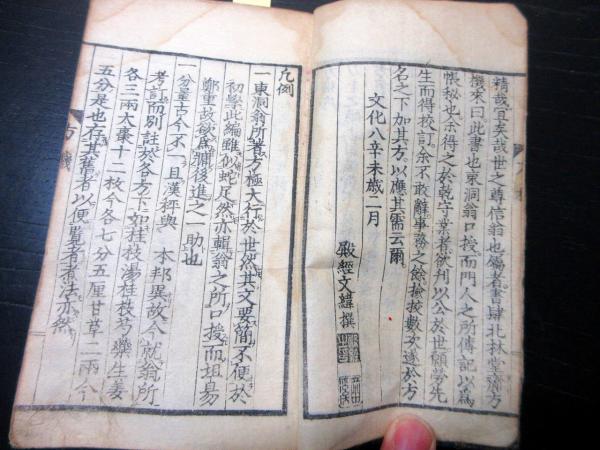 精哉宜矣哉世之尊信翁也偶者書肆北林堂齎方
機來曰此書也東洞翁口授而門人之所傳記以爲
帳秘也余得之於乾守業者欲刊以公於世願勞先
生而得校訂余不敢辭事務之餘撿挍數次遂於方
名之下加其方以應其需云爾
文化八辛未歲二月
殿經文緯撰
凡例
一東洞翁所著方極大行於世然其文要簡不便於
初學此編雖似蛇尾然亦輯翁之所口授而坦易
鄭重故欲爲裨後進之一助也
一分量古今不一且漢秤與本邦異故今就翁所
考訂而別註於各方下如桂枝湯桂枝芍藥生姜
各三兩大棗十二枚今各七分五厘甘草二兩今
五分是也存其舊者以便覽者煮法亦然
方機